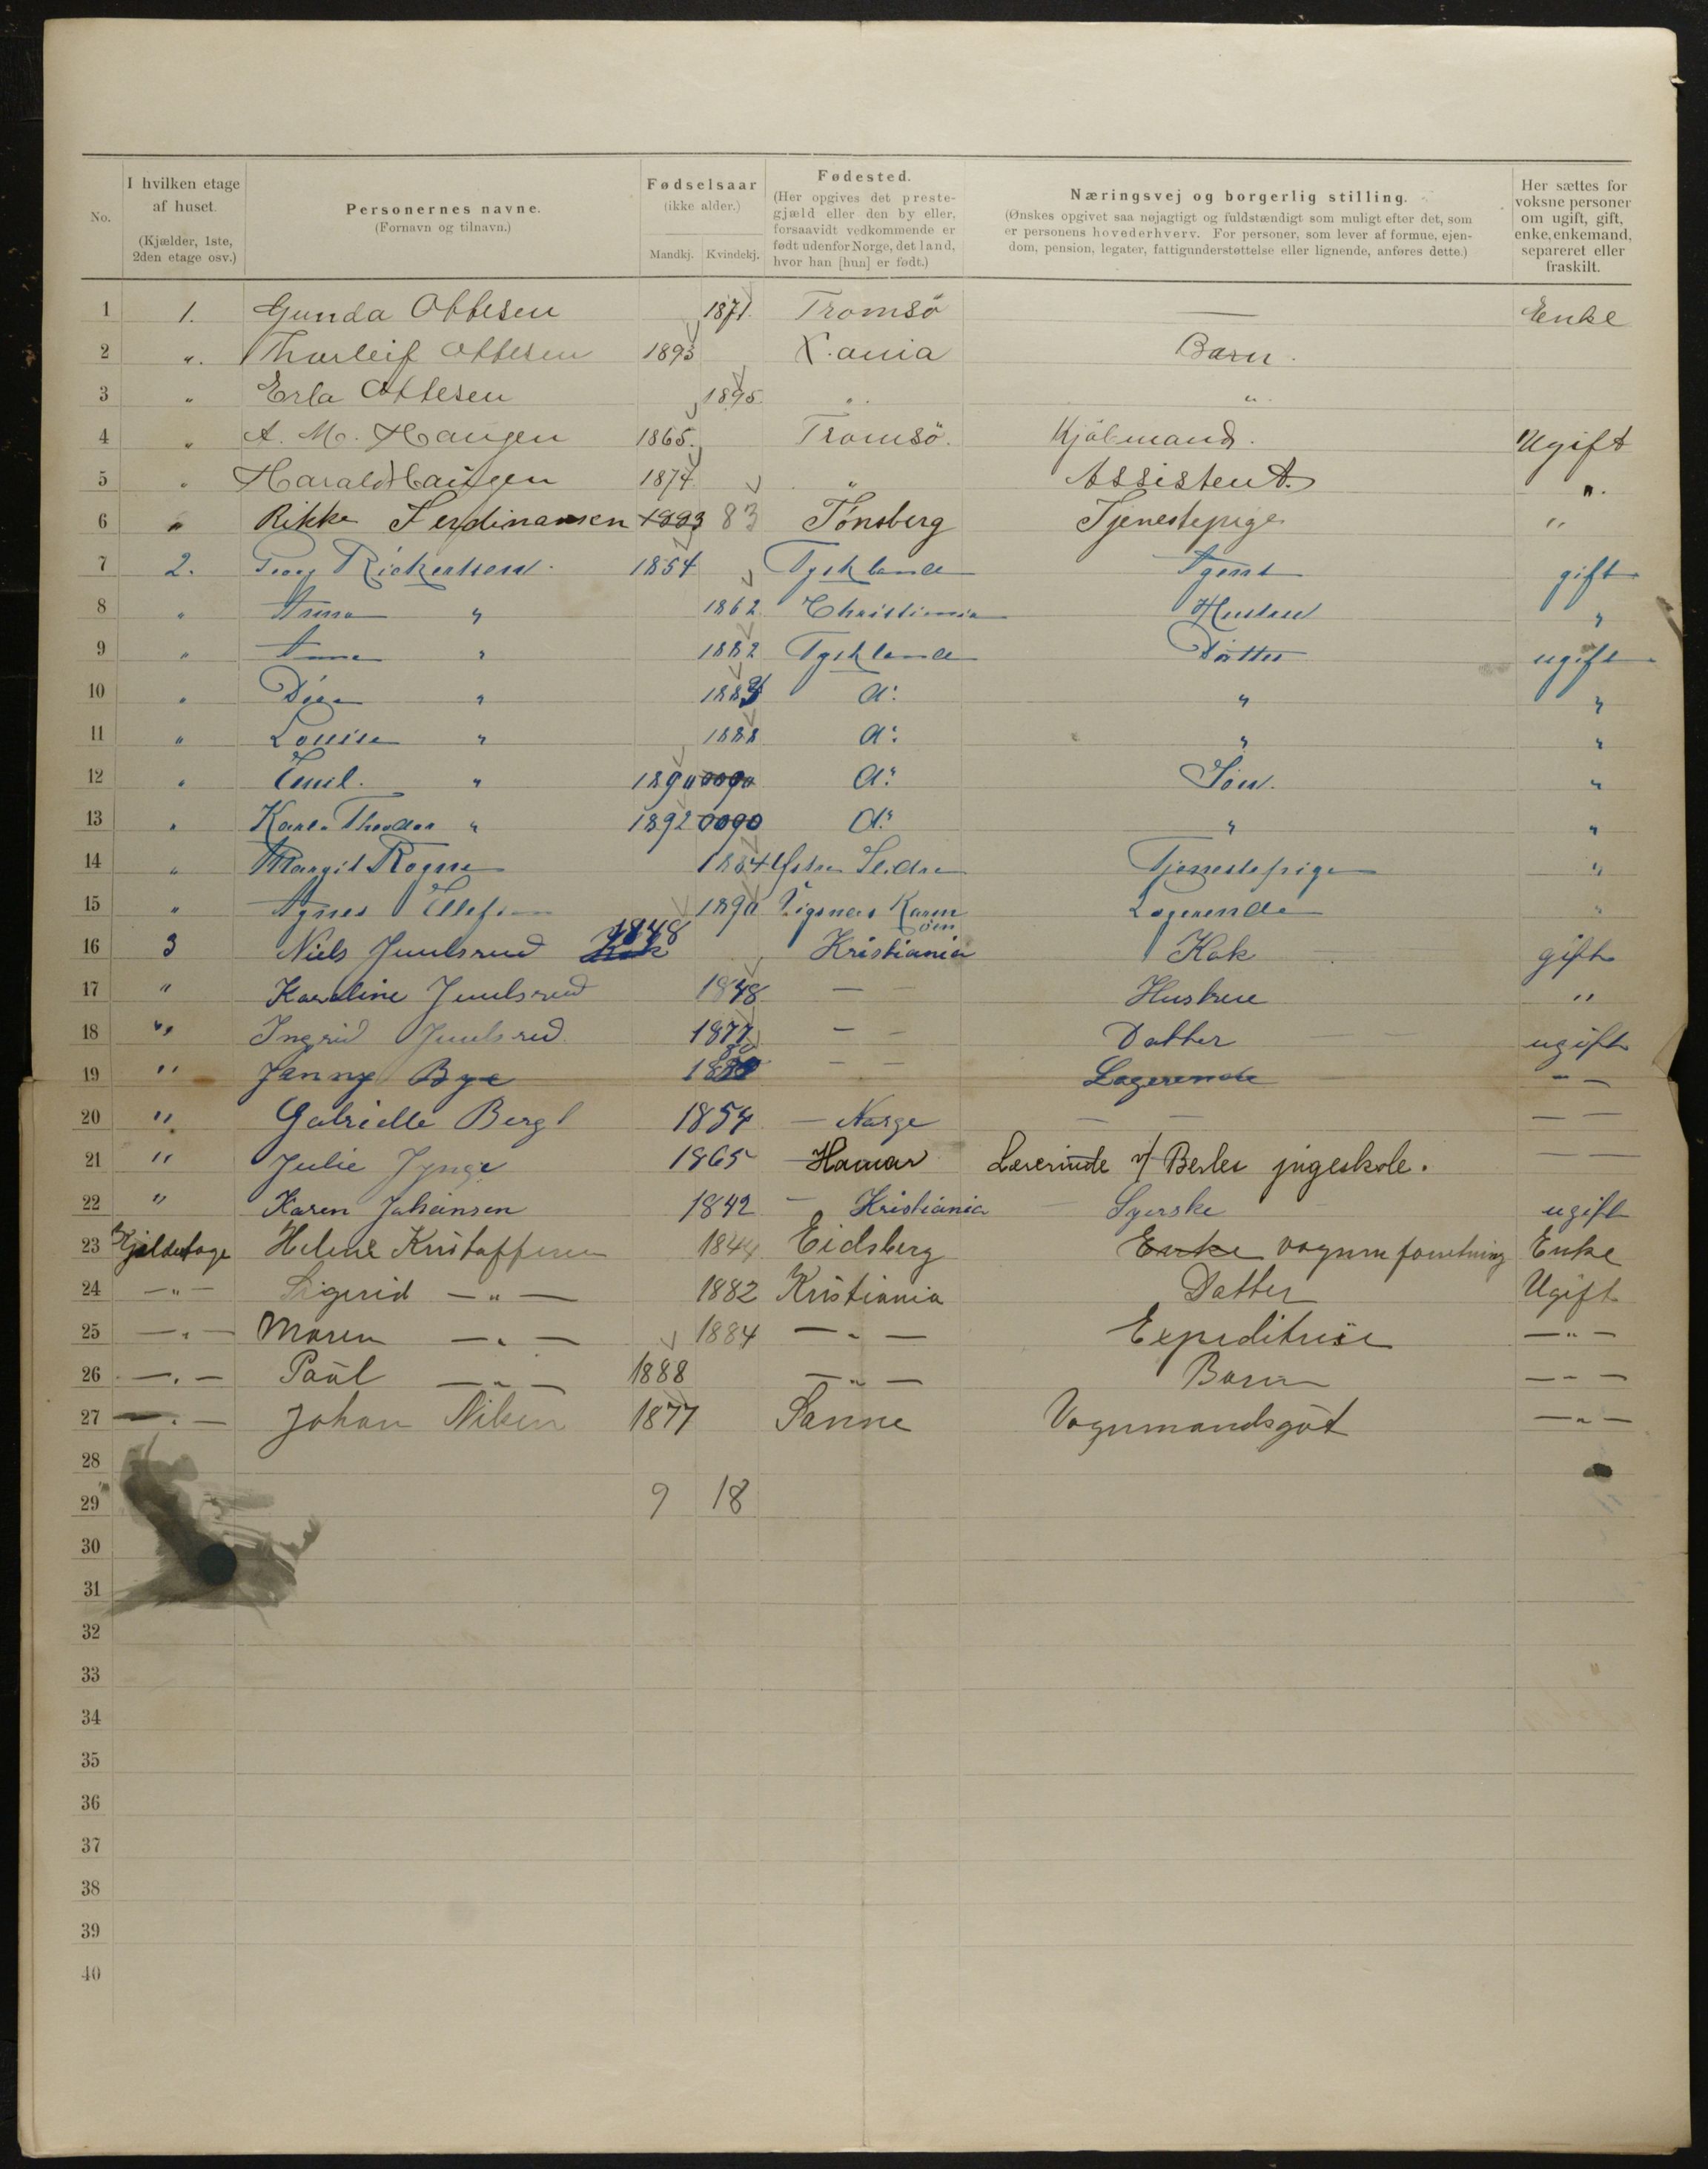 No.
I hvilken etage af huset. (Kjælder, 1ste, 2den etage osv.)
Personernes navne. (Fornavn og tilnavn.)
Fødselsaar (ikke alder.) Mandkj. Kvindekj.
Fødested. (Her opgives det prestegjæld eller den by eller, forsaavidt vedkommende er født udenfor Norge, det land, hvor han [hun] er født.)
Næringsvej og borgerlig stilling. (Ønskes opgivet saa nøjagtigt og fuldstændigt som muligt efter det, som er personens hovederhverv. For personer, som lever af formue, ejendom, pension, legater, fattigunderstøttelse eller lignende, anføres dette.)
Her sættes for voksne personer om ugift, gift, enke, enkemand, separeret eller fraskilt.
1 1. Gunda Ottesen 1871. Tromsö — Enke
2 ". Thorleif Ottesen 1893 X.ania Barn.
3 " Erla Ottesen 1895 " "
4 " A. M. Haugen 1865. Tromsö. Kjöbmand. Ugift
5 " Harald Haugen 1874 " Assistent. ".
6 " Rikke Ferdinansen 1883 83 Tönsberg Tjenestepige "
7 2. Georg Rickertsen. 1854 Tyskland Agent gift
8 " Anna " 1862 Christiania Hustru "
9 " Anna " 1882 Tyskland Datter ugift
10 " " 1884 d: " "
11 " Louise " 1888 d: " "
12 " Emil. " 1890 d: Sön. "
13 " Karl Theodor " 1892 d: " "
14 " Margit Rogne 1884 Östre Slidre Tjenestepige "
15 " Agnes Ellefsen 1890 Vigsnes Karmöen Logerende "
16 3 Niels Juulsrud Kok 1848 Kristiania Kok gift
17 " Karoline Juulsrud 1848 — — Hustrue "
18 " Ingrid Juulsrud 1877 — — Datter ugift
19 " Jenny Bye 1880 — — Logerende — —
20 " Gabrielle Berg 1854 — Norge — — — —
21 " Julie Jynge 1865 — Hamar Lærerinde v/ Berles pigeskole. — —
22 " Karen Johansen 1842 — Kristiania Syerske ugift
23 Kjelderetage Helene Kristoffersen 1844 Eidsberg Enke vognmforretning Enke
24 — " — Sigrid — " — 1882 Kristiania Datter Ugift
25 — " — Maren — " — 1884 — " — Expeditrise — " —
26 — " — Paul — " — 1888 — " — Barn — " —
27 — " — Johan Nilsen 1877 Sanne Vognmandsgut — " —
28
29 9 18
30
31
32
33
34
35
36
37
38
39
40